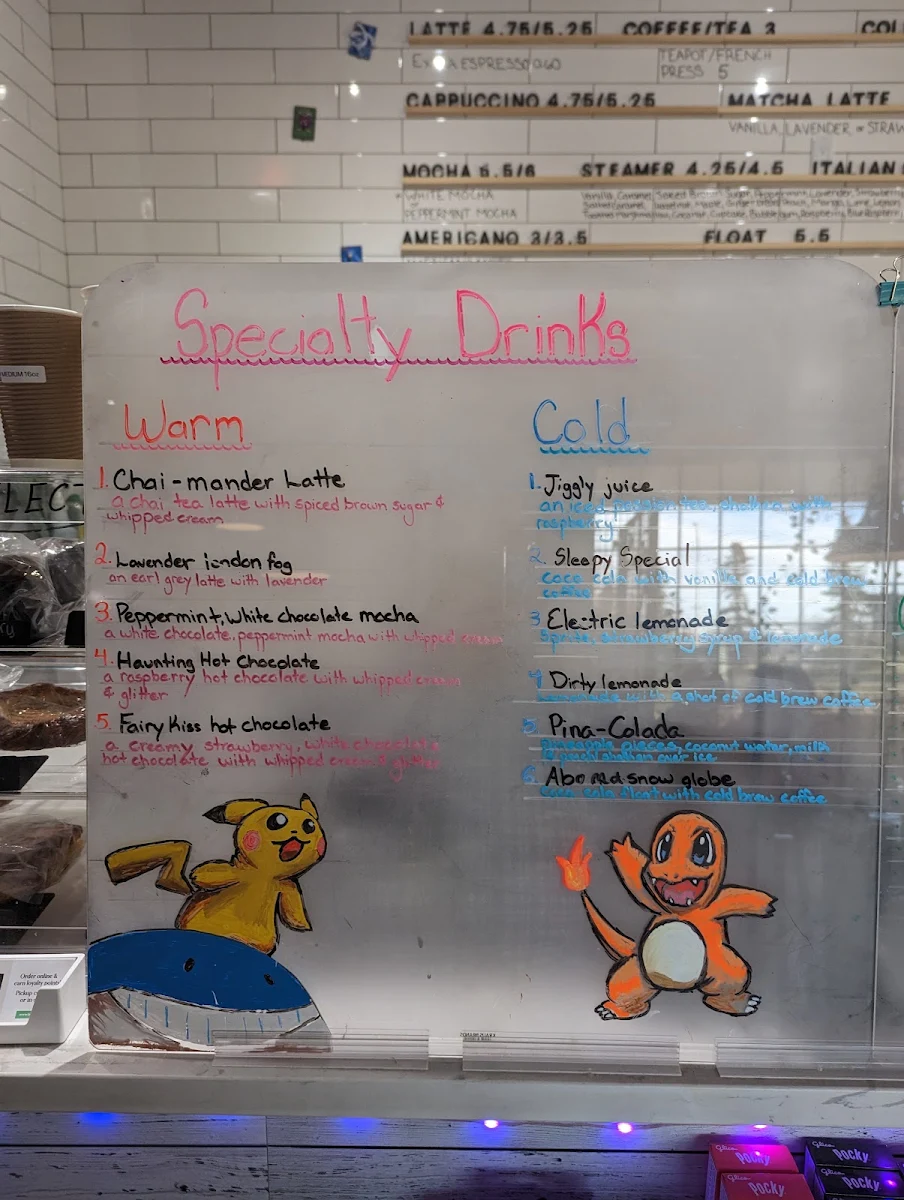 LATTE 4.75/5.25 COFFEE/TEA 3
ESPRESSO 0.60
TEAPOT/FRENCH
PRESS 5
CAPPUCCINO 4.75/5.25 MATCHA LATTE
VANILLA, LAVENDER or STRAW
MOCHA 5.5/6 STEAMER 4.25/4.5 ITALIAN
WHITE MOCHA
PEPPERMINT MOCHA
AMERICANO 3/3.5 FLOAT 5.5
Specialty Drinks
Warm
1. Chai-mander Latte
a chai tea latte with spiced brown sugar &
whipped cream
2. Lavender london fog
an earl grey latte with lavender
3. Peppermint, white chocolate mocha
a white chocolate, peppermint mocha with whipped cream
4. Haunting Hot Chocolate
a raspberry hot chocolate with whipped cream
& glitter
5. Fairy Kiss hot chocolate
a creamy strawberry, white chocolate
hot chocolate with whipped cream & glitter
Cold
1. Jiggly juice
an iced passion tea, shaken with
raspberry
2. Sleepy Special
coca cola with vanilla and cold brew
coffee
3 Electric lemonade
Sprite, strawberry syrup & lemonade
4 Dirty lemonade
Lemonade with a shot of cold brew coffee
5. Pina-Colada
pineapple pieces, coconut water, milk
shaken over ice
6. snow globe
coca cola float with cold brew coffee
LECT
MEDIUM 16oz
Order online &
earn loyalty points
Pickup
or in
Glico
Pocky
Glico
Pocky
Pocky
Pocky